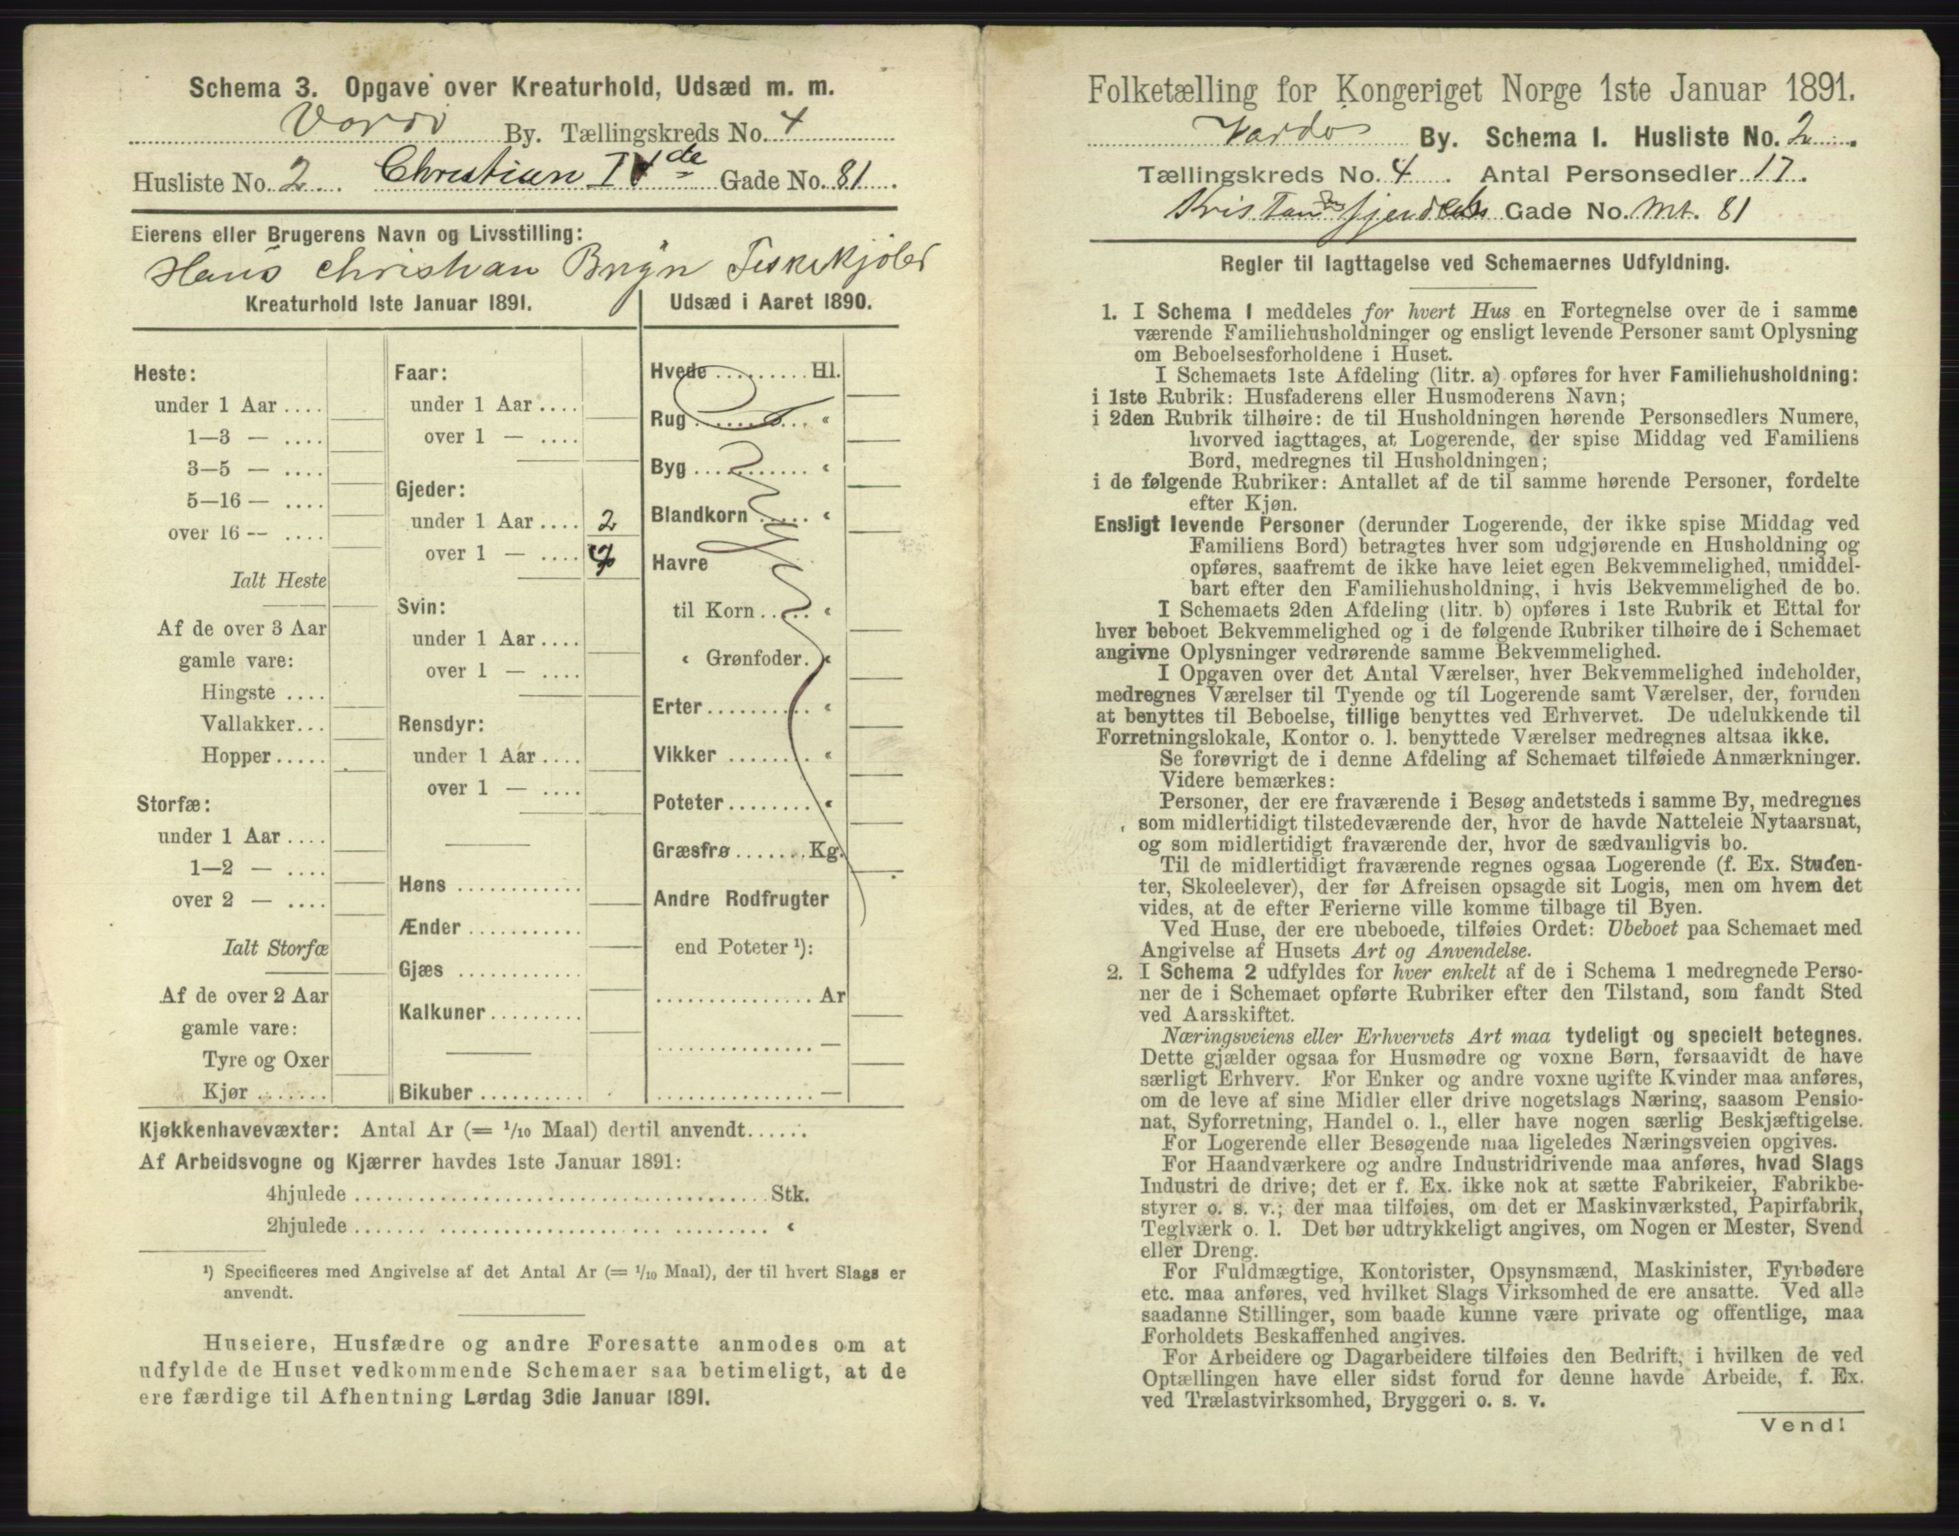 Schema 3. Opgave over Kreaturhold, Udsæd m. m.
Vardö By. Tællingskreds No. 4
Husliste No. 2 Christian IVde Gade No. 81
Eierens eller Brugerens Navn og Livsstilling:
Hans Christian Bryn Fiskekjøber
Kreaturhold 1ste Januar 1891.
Heste:
under 1 Aar ....
1—3 — ....
3—5 — ....
5—16 — ....
over 16 — ....
Ialt Heste
Af de over 3 Aar
gamle vare:
Hingste ....
Vallakker...
Hopper .....
Storfæ:
under 1 Aar ....
1—2 — ....
over 2 — ....
Ialt Storfæ
Af de over 2 Aar
gamle vare:
Tyre og Oxer
Kjør .......
Faar:
under 1 Aar ....
over 1 — ....
Gjeder:
under 1 Aar .... 2
over 1 — ....
Svin:
under 1 Aar ....
over 1 — ....
Rensdyr:
under 1 Aar ....
over 1 — ....
Høns ............
Ænder ...........
Gjæs ............
Kalkuner.........
Bikuber ..........
Udsæd i Aaret 1890.
Hvede ......... Hl.
Rug .......... «
Byg .......... «
Blandkorn ..... «
Havre
til Korn ..... «
« Grønfoder. «
Erter ......... «
Vikker ........ «
Poteter ........ «
Græsfrø ....... Kg.
Andre Rodfrugter
end Poteter ¹):
............... Ar
............... —
............... —
Kjøkkenhavevæxter: Antal Ar (= 1/10 Maal) dertil anvendt......
Af Arbeidsvogne og Kjærrer havdes 1ste Januar 1891:
4hjulede ........................................ Stk.
2hjulede ........................................ «
¹) Specificeres med Angivelse af det Antal Ar (= 1/10 Maal), der til hvert Slags er
anvendt.
Huseiere, Husfædre og andre Foresatte anmodes om at
udfylde de Huset vedkommende Schemaer saa betimeligt, at de
ere færdige til Afhentning Lørdag 3die Januar 1891.
Folketælling for Kongeriget Norge 1ste Januar 1891.
Vardø By. Schema I. Husliste No. 2
Tællingskreds No. 4. Antal Personsedler 17.
Kristian Gade No. Mt. 81
Regler til Iagttagelse ved Schemaernes Udfyldning.
1. I Schema 1 meddeles for hvert Hus en Fortegnelse over de i samme
værende Familiehusholdninger og ensligt levende Personer samt Oplysning
om Beboelsesforholdene i Huset.
I Schemaets 1ste Afdeling (litr. a) opføres for hver Familiehusholdning:
i 1ste Rubrik: Husfaderens eller Husmoderens Navn;
i 2den Rubrik tilhøire: de til Husholdningen hørende Personsedlers Numere,
hvorved iagttages, at Logerende, der spise Middag ved Familiens
Bord, medregnes til Husholdningen;
i de følgende Rubriker: Antallet af de til samme hørende Personer, fordelte
efter Kjøn.
Ensligt levende Personer (derunder Logerende, der ikke spise Middag ved
Familiens Bord) betragtes hver som udgjørende en Husholdning og
opføres, saafremt de ikke have leiet egen Bekvemmelighed, umiddel-
bart efter den Familiehusholdning, i hvis Bekvemmelighed de bo.
I Schemaets 2den Afdeling (litr. b) opføres i 1ste Rubrik et Ettal for
hver beboet Bekvemmelighed og i de følgende Rubriker tilhøire de i Schemaet
angivne Oplysninger vedrørende samme Bekvemmelighed.
I Opgaven over det Antal Værelser, hver Bekvemmelighed indeholder,
medregnes Værelser til Tyende og til Logerende samt Værelser, der, foruden
at benyttes til Beboelse, tillige benyttes ved Erhvervet. De udelukkende til
Forretningslokale, Kontor o. l. benyttede Værelser medregnes altsaa ikke.
Se forøvrigt de i denne Afdeling af Schemaet tilføiede Anmærkninger.
Videre bemærkes:
Personer, der ere fraværende i Besøg andetsteds i samme By, medregnes
som midlertidigt tilstedeværende der, hvor de havde Natteleie Nytaarsnat,
og som midlertidigt fraværende der, hvor de sædvanligvis bo.
Til de midlertidigt fraværende regnes ogsaa Logerende (f. Ex. Studen-
ter, Skoleelever), der før Afreisen opsagde sit Logis, men om hvem det
vides, at de efter Ferierne ville komme tilbage til Byen.
Ved Huse, der ere ubeboede, tilføies Ordet: Ubeboet paa Schemaet med
Angivelse af Husets Art og Anvendelse.
2. I Schema 2 udfyldes for hver enkelt af de i Schema 1 medregnede Perso-
ner de i Schemaet opførte Rubriker efter den Tilstand, som fandt Sted
ved Aarsskiftet.
Næringsveiens eller Erhvervets Art maa tydeligt og specielt betegnes.
Dette gjælder ogsaa for Husmødre og voxne Børn, forsaavidt de have
særligt Erhverv. For Enker og andre voxne ugifte Kvinder maa anføres,
om de leve af sine Midler eller drive nogetslags Næring, saasom Pensio-
nat, Syforretning, Handel o. l., eller have nogen særlig Beskjæftigelse.
For Logerende eller Besøgende maa ligeledes Næringsveien opgives.
For Haandværkere og andre Industridrivende maa anføres, hvad Slags
Industri de drive; det er f. Ex. ikke nok at sætte Fabrikeier, Fabrikbe-
styrer o. s. v.; der maa tilføies, om det er Maskinværksted, Papirfabrik,
Teglværk o. l. Det bør udtrykkeligt angives, om Nogen er Mester, Svend
eller Dreng.
For Fuldmægtige, Kontorister, Opsynsmænd, Maskinister, Fyrbødere
etc. maa anføres, ved hvilket Slags Virksomhed de ere ansatte. Ved alle
saadanne Stillinger, som baade kunne være private og offentlige, maa
Forholdets Beskaffenhed angives.
For Arbeidere og Dagarbeidere tilføies den Bedrift, i hvilken de ved
Optællingen have eller sidst forud for denne havde Arbeide, f. Ex.
ved Trælastvirksomhed, Bryggeri o. s. v.
Vend!